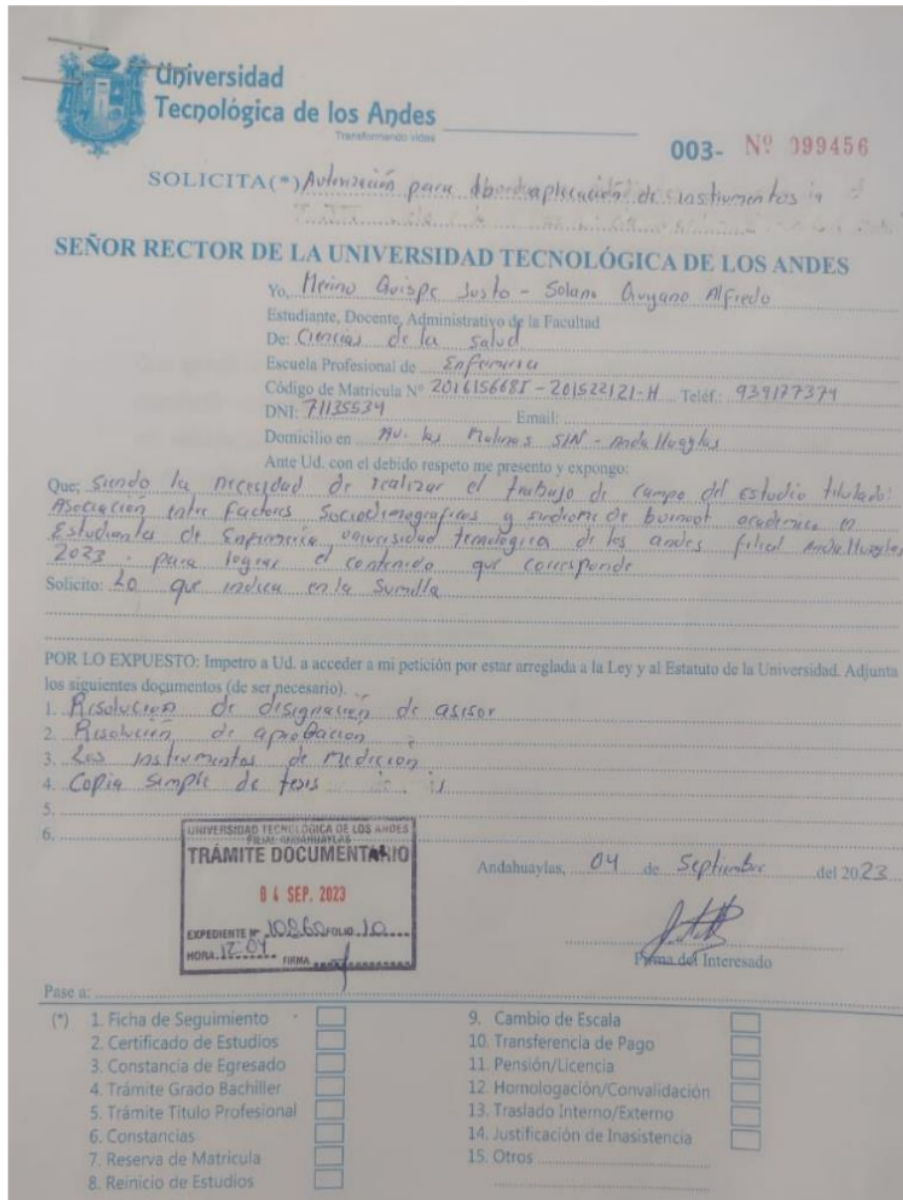 Universidad
Tecnológica de los Andes
Transformando vidas
003- Nº 099456
SOLICITA(*) Autorización para aplicación de instrumentos
SEÑOR RECTOR DE LA UNIVERSIDAD TECNOLÓGICA DE LOS ANDES
Yo, Merino Quispe Justo - Solano Alfredo
Estudiante, Docente, Administrativo de la Facultad
De: Ciencias de la salud
Escuela Profesional de Enfermeria
Código de Matricula Nº 201615668I - 201522121-H Teléf.: 939177374
DNI: 71135534 Email:
Domicilio en Av. los Molinos S/N - Andahuaylas
Ante Ud. con el debido respeto me presento y expongo:
Que; siendo la necesidad de realizar el trabajo de campo del estudio titulado:
Asociación entre Factores Sociodemograficos y sindrome de burnout academico en
Estudiantes de Enfermería universidad tecnologica de los andes filial Andahuaylas
2023. para lograr el contenido que corresponde
Solicito: Lo que indica en la Sumilla
POR LO EXPUESTO: Impetro a Ud. a acceder a mi petición por estar arreglada a la Ley y al Estatuto de la Universidad. Adjunta
los siguientes documentos (de ser necesario).
1. Resolución de designación de asesor
2. Resolución de aprobacion
3. Los instrumentos de medicion
4. Copia simple de tesis
5.
6.
UNIVERSIDAD TECNOLÓGICA DE LOS ANDES
FILIAL ANDAHUAYLAS
TRÁMITE DOCUMENTARIO
04 SEP. 2023
EXPEDIENTE Nº 10860 FOLIO 10
HORA 12:04 FIRMA
Andahuaylas, 04 de Septiembre del 2023
Firma del Interesado
Pase a:
(*) 1. Ficha de Seguimiento
2. Certificado de Estudios
3. Constancia de Egresado
4. Trámite Grado Bachiller
5. Trámite Titulo Profesional
6. Constancias
7. Reserva de Matricula
8. Reinicio de Estudios
9. Cambio de Escala
10. Transferencia de Pago
11. Pensión/Licencia
12. Homologación/Convalidación
13. Traslado Interno/Externo
14. Justificación de Inasistencia
15. Otros